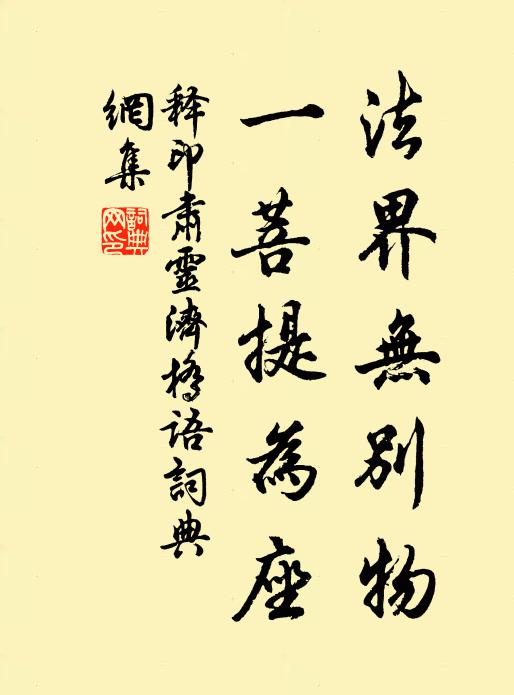 法界無別物
一菩提為座
释印肅靈濟橋語詞典
網集
詞典
网印